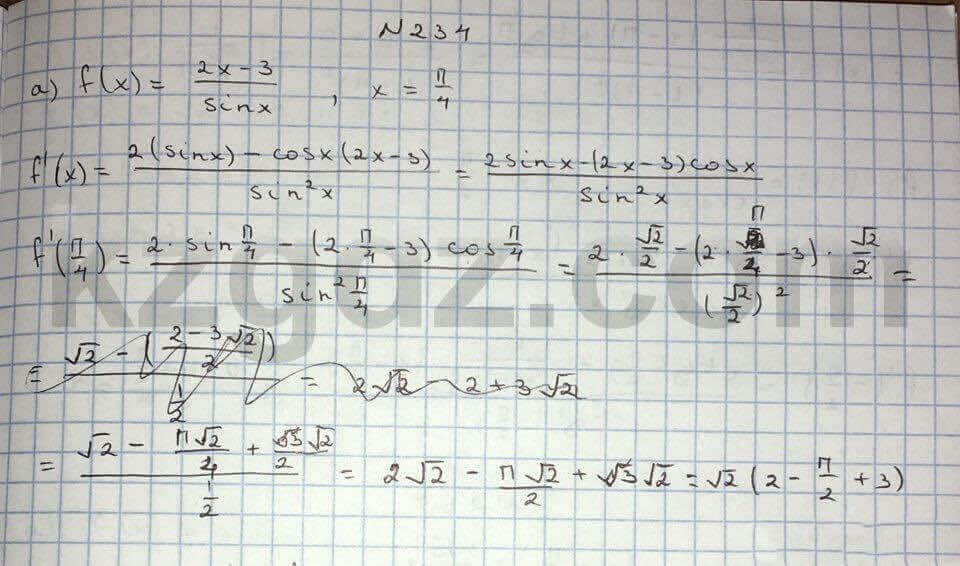 N 234
a) f(x) = (2x-3)/(sinx), x = π/4
f'(x) = (2(sinx) - cosx(2x-3))/(sin²x) = (2sinx-(2x-3)cosx)/(sin²x)
f'(π/4) = (2·sin π/4 - (2·π/4 - 3) cos π/4)/(sin² π/4) = (2·√2/2 - (2·π/4 - 3)·√2/2)/((√2/2)²) =
= (√2 - ((2-3√2)/2))/(1/2) = 2√2 - 2 + 3√2
= (√2 - π√2/4 + 3√2/2)/(1/2) = 2√2 - π√2/2 + 3√2 = √2 (2 - π/2 + 3)
kzgdz.com